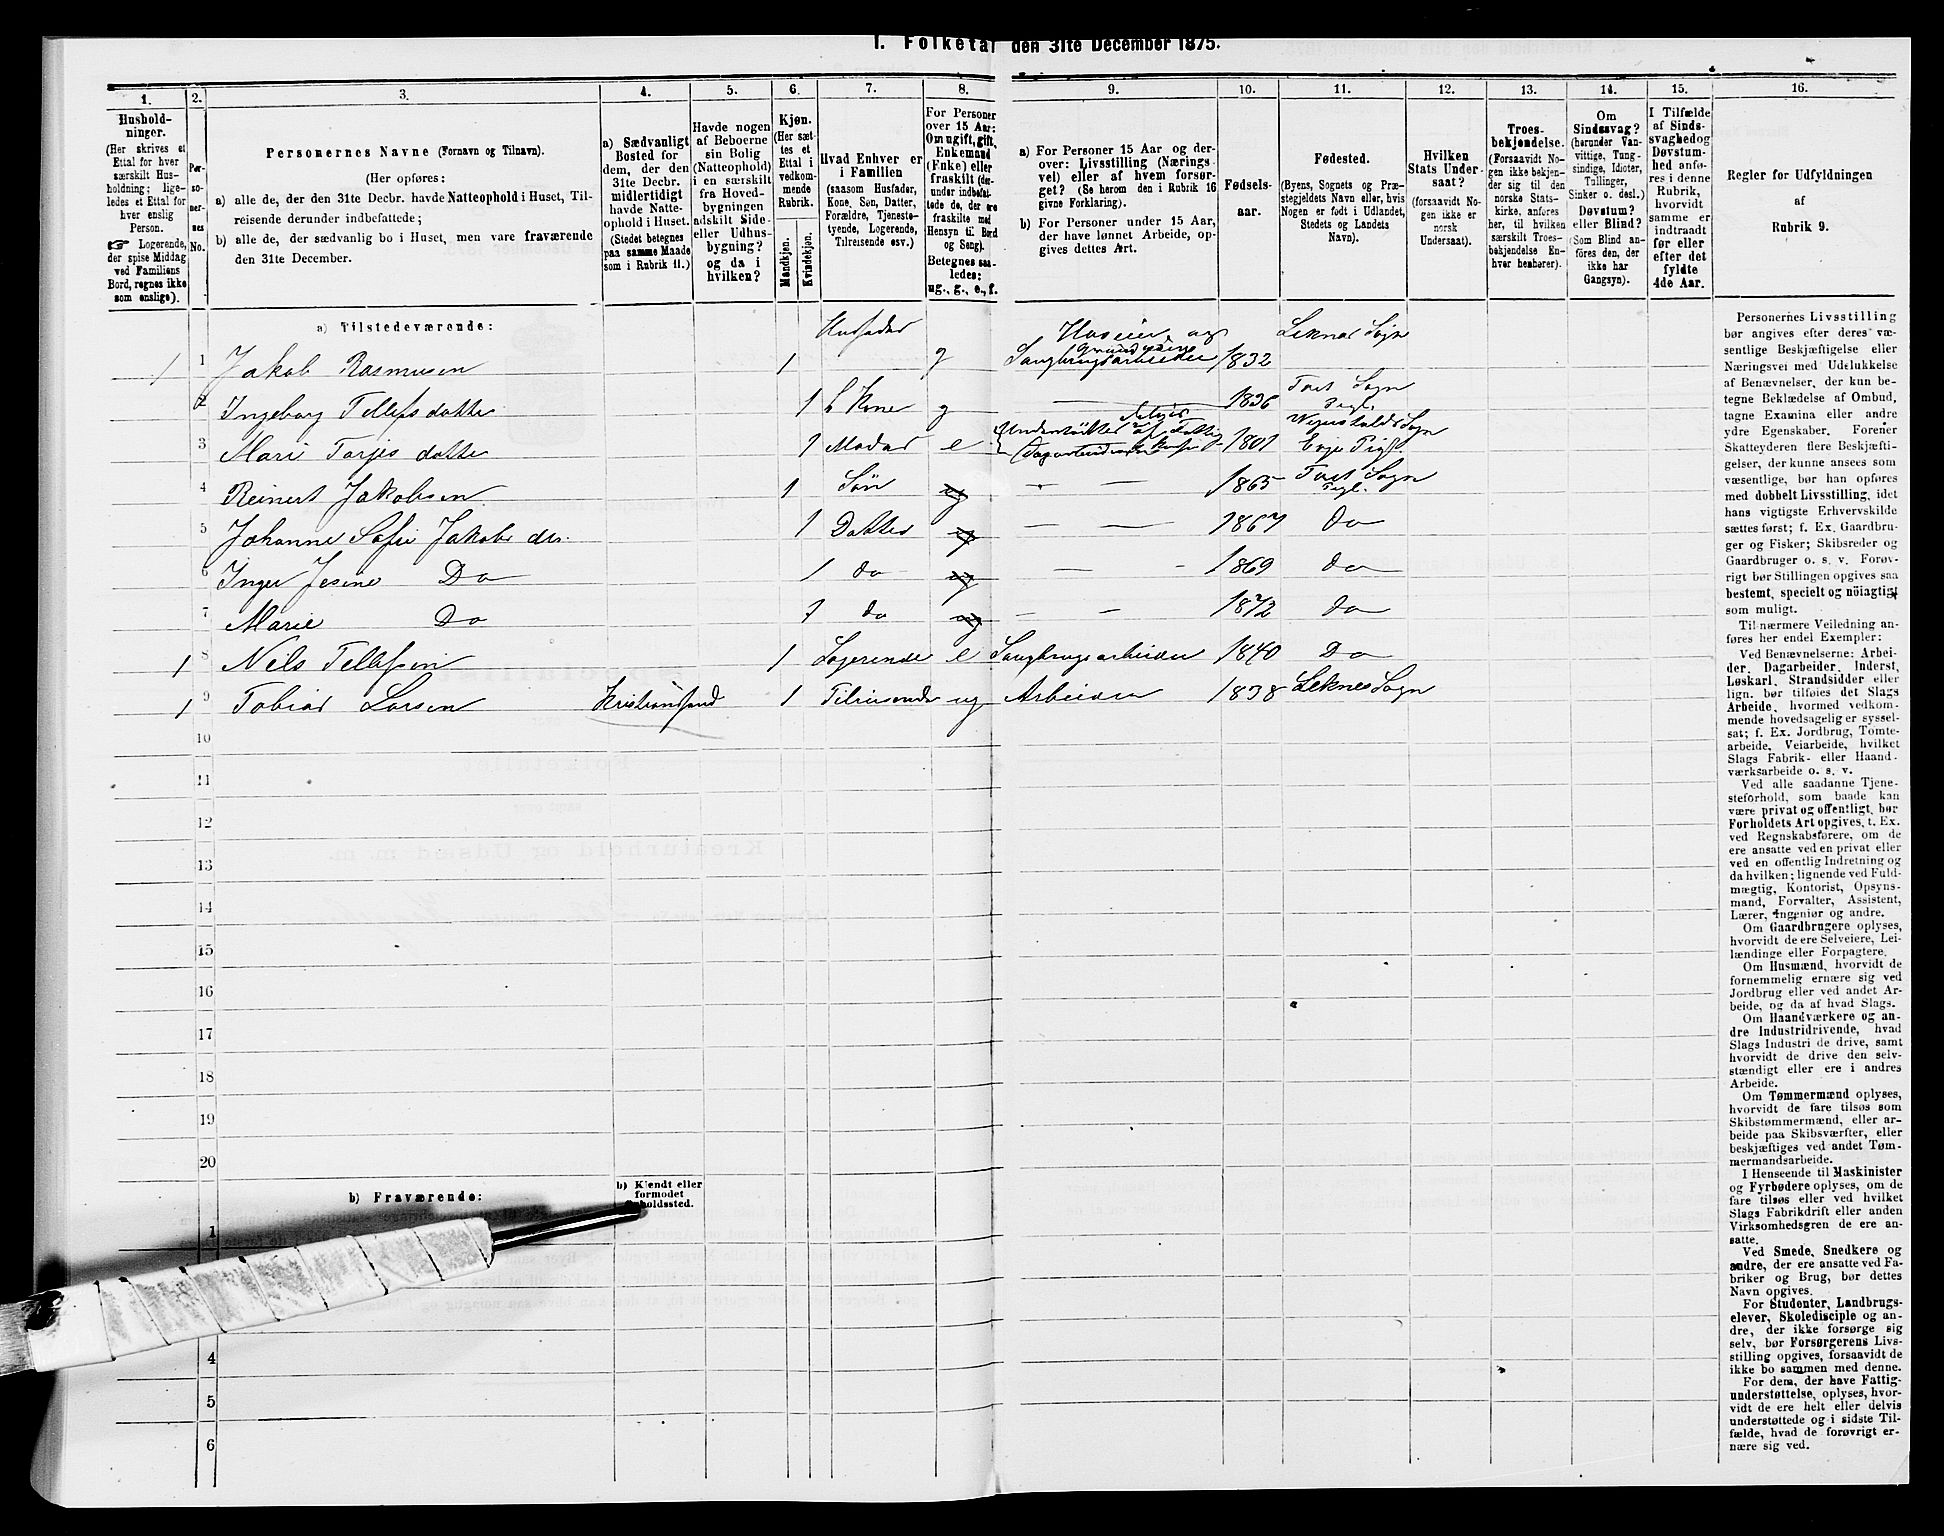 1. Folketal den 31te December 1875.
1. 2. 3. 4. 5. 6. 7. 8. 9. 10. 11. 12. 13. 14. 15. 16.
Hushold-
ninger.
(Her skrives et
Ettal for hver
særskilt Hus-
holdning; lige-
ledes et Ettal for
hver enslig
Person.
☞ Logerende,
der spise Middag
ved Familiens
Bord, regnes ikke
som enslige).
Per-
so-
ner-
nes
No.
Personernes Navne (Fornavn og Tilnavn).
(Her opføres:
a) alle de, der den 31te Decbr. havde Natteophold i Huset, Til-
reisende derunder indbefattede;
b) alle de, der sædvanlig bo i Huset, men vare fraværende
den 31te December.
a) Sædvanligt
Bosted for
dem, der den
31te Decbr.
midlertidigt
havde Natte-
ophold i Huset.
(Stedet betegnes
paa samme Maade
som i Rubrik 11.)
Havde nogen
af Beboerne
sin Bolig
(Natteophold)
i en særskilt
fra Hoved-
bygningen
adskilt Side-
eller Udhus-
bygning?
og da i
hvilken?
Kjøn.
(Her sæt-
tes et
Ettal i
vedkom-
mende
Rubrik.
Mandkjøn.
Kvindekjøn.
Hvad Enhver er
i Familien
(saasom Husfader,
Kone, Søn, Datter,
Forældre, Tjeneste-
tyende, Logerende,
Tilreisende osv.)
For Personer
over 15 Aar:
Om ugift, gift,
Enkemand
(Enke) eller
fraskilt (der-
under indbefat-
tede de, der ere
fraskilte med
Hensyn til Bord
og Seng).
Betegnes saa-
ledes:
ug., g., e., f.
a) For Personer 15 Aar og der-
over: Livsstilling (Nærings
vei) eller af hvem forsør-
get? (Se herom den i Rubrik 16
givne Forklaring).
b) For Personer under 15 Aar,
der have lønnet Arbeide, op-
gives dettes Art.
Fødsels-
aar.
Fødested.
(Byens, Sognets og Præ-
stegjeldets Navn eller, hvis
Nogen er født i Udlandet,
Stedets og Landets
Navn).
Hvilken
Stats Under-
saat?
(forsaavidt No-
gen ikke er
norsk
Undersaat).
Troes-
bekjendelse.
(Forsaavidt No-
gen ikke bekjen-
der sig til den
norske Stats-
kirke, anføres
her, til hvilken
særskilt Troes-
bekjendelse En-
hver henhører).
Om
Sindssvag?
(herunder Van-
vittige, Tung-
sindige, Idioter,
Tullinger,
Sinker o. desl.)
Døvstum?
eller Blind?
(Som Blind an-
føres den, der
ikke har
Gangsyn).
I Tilfælde
af Sinds-
svaghed og
Døvstum-
hed anfø-
res i denne
Rubrik,
hvorvidt
samme er
indtraadt
før eller
efter det
fyldte
4de Aar.
Regler for Udfyldningen
af
Rubrik 9.
a) Tilstedeværende:
Husfader Huseier og Leknes Sogn
1 1 Jakob Rasmusen 1 g Saugbrugsarbeider 1832
2 Ingeborg Tellefsdatter 1 Kone g 1836 Tveit Sogn
3 Mari Torjesdatter 1 Moder e 1801
4 Reinert Jakobsen 1 Søn ug 1865 Tveit Sogn
5 Johanne Sofie Jakobsdtr. 1 Datter ug 1867 Do
6 Inger Jesine Do 1 do ug 1869 Do
7 Marie Do 1 do ug 1872 Do
1 8 Nils Tellefsen 1 Logerende e Saugbrugsarbeider 1840 Do
1 9 Tobias Larsen Kristiansand 1 Tilreisende ug Arbeider 1838 Leknes Sogn
10
11
12
13
14
15
16
17
18
19
20
b) Fraværende:
b) Kjendt eller
formodet
Opholdssted.
1
4
5
6
Personernes Livsstilling
bør angives efter deres væ-
sentlige Beskjæftigelse eller
Næringsvei med Udelukkelse
af Benævnelser, der kun be-
tegne Beklædelse af Ombud,
tagne Examina eller andre
ydre Egenskaber. Forener
Skatteyderen flere Beskjæfti-
gelser, der kunne ansees som
væsentlige, bør han opføres
med dobbelt Livsstilling, idet
hans vigtigste Erhvervskilde
sættes først; f. Ex. Gaardbru-
ger og Fisker; Skibsreder og
Gaardbruger o. s. v. Forøv-
rigt bør Stillingen opgives saa
bestemt, specielt og nöiagtigt
som muligt.
Til nærmere Veiledning an-
føres her endel Exempler:
Ved Benævnelserne: Arbei-
der, Dagarbeider, Inderst,
Løskarl, Strandsidder eller
lign. bør tilføies det Slags
Arbeide, hvormed vedkom-
mende hovedsagelig er syssel-
sat; f. Ex. Jordbrug, Tomte-
arbeide, Veiarbeide, hvilket
Slags Fabrik- eller Haand-
værksarbeide o. s. v.
Ved alle saadanne Tjene-
steforhold, som baade kan
være privat og offentligt, bør
Forholdets Art opgives, t. Ex.
ved Regnskabsførere, om de
ere ansatte ved en privat eller
ved en offentlig Indretning og
da hvilken; lignende ved Fuld-
mægtig, Kontorist, Opsyns-
mand, Forvalter, Assistent,
Lærer, Ingeniør og andre.
Om Gaardbrugere oplyses,
hvorvidt de ere Selveiere, Lei-
lændinge eller Forpagtere.
Om Husmænd, hvorvidt de
fornemmelig ernære sig ved
Jordbrug eller ved andet Ar-
beide, og da af hvad Slags.
Om Haandværkere og an-
dre Industridrivende, hvad
Slags Industri de drive, samt
hvorvidt de drive den selv-
stændigt eller ere i andres
Arbeide.
Om Tømmermænd oplyses,
hvorvidt de fare tilsøs som
Skibstømmermænd, eller ar-
beide paa Skibsværfter, eller
beskjæftiges ved andet Tøm-
mermandsarbeide.
I Henseende til Maskinister
og Fyrbødere oplyses, om de
fare tilsøs eller ved hvilket
Slags Fabrikdrift eller anden
Virksomhedsgren de ere an-
satte.
Ved Smede, Snedkere og
andre, der ere ansatte ved Fa-
briker og Brug, bør dettes
Navn opgives.
For Studenter, Landbrugs-
elever, Skoledisciple og an-
dre, der ikke forsørge sig
selv, bør Forsørgerens Livs-
stilling opgives, forsaavidt de
ikke bo sammen med denne.
For dem, der have Fattig-
understøttelse, oplyses, hvor-
vidt de ere helt eller delvis
understøttede og i sidste Til-
fælde, hvad de forøvrigt er-
nære sig ved.